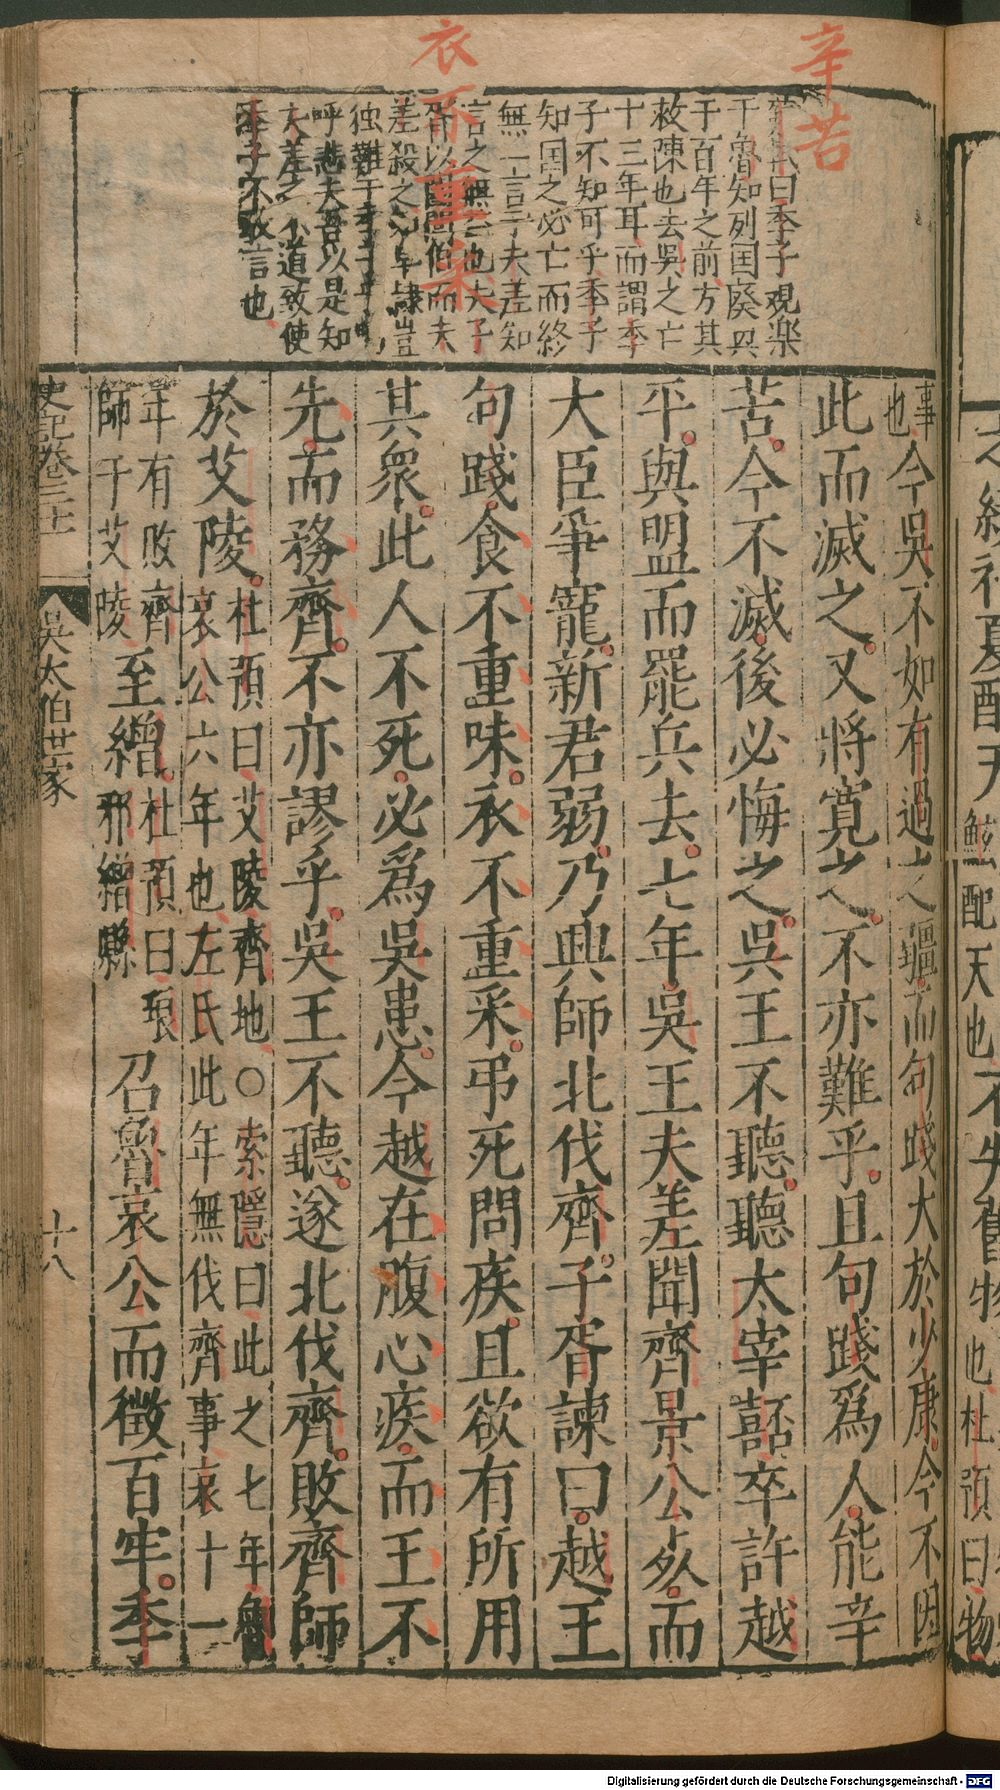 辛苦
衣不重采
曰季子观楽
于魯知列囯廢㒷
于百年之前方其
救陳也去吳之亡
十三年耳而謂季
子不知可乎季子
知囯之必亡而終
無一言于夫差知
言之無益也夫子
胥以闔閭伯而夫
差殺之如皁隷豈
独難于季子乎
呼悲夫吾以是知
夫差之不道致使
季子不敢言也
事也今吳不如有過之彊而句踐大於少康今不因
此而滅之又將寬之不亦難乎且句踐爲人能辛
苦今不滅後必悔之吳王不聽聽太宰嚭卒許越
平與盟而罷兵去七年吳王夫差聞齊景公死而
大臣爭寵新君弱乃興師北伐齊子胥諫曰越王
句踐食不重味衣不重采弔死問疾且欲有所用
其衆此人不死必爲吳患今越在腹心疾而王不
先而務齊不亦謬乎吳王不聽遂北伐齊敗齊師
於艾陵杜預曰艾陵齊地○索隱曰此之七年魯哀公六年也左氏此年無伐齊事哀十一
年有敗齊師于艾陵至繒杜預曰琅邪繒縣召魯哀公而徵百牢季
史記卷三十一
吳太伯世家
十八
鯀配天也不失舊物也杜預曰物
Digitalisierung gefördert durch die Deutsche Forschungsgemeinschaft - DFG